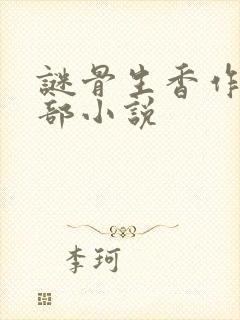 謎骨生香作
部小説
李珂